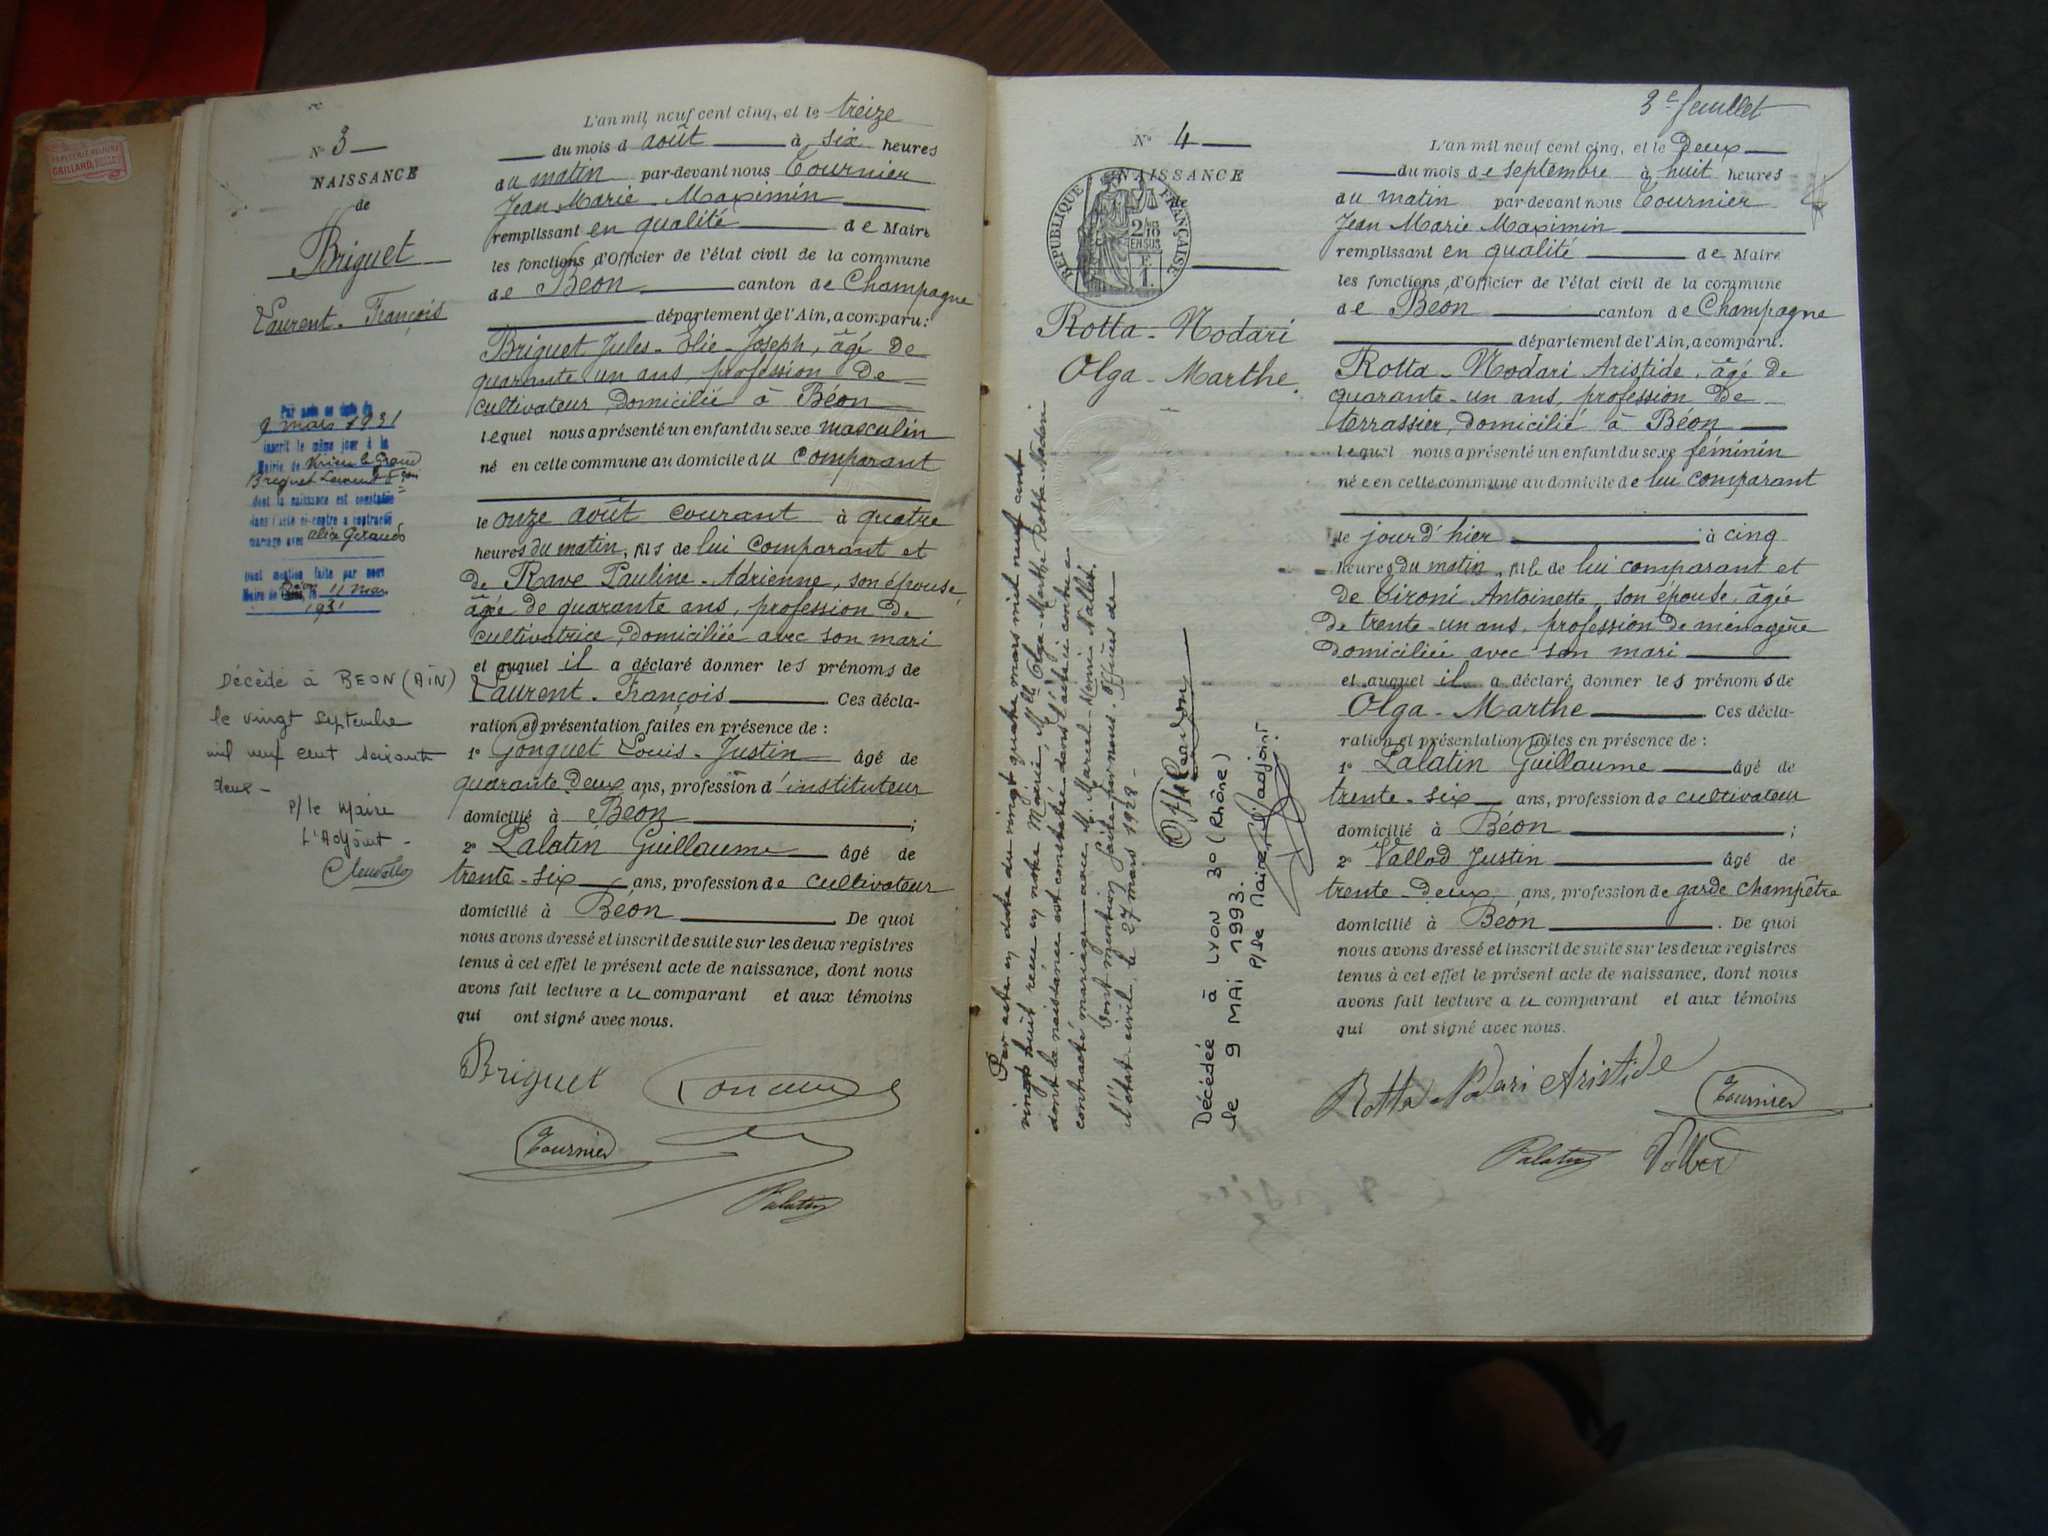 N° 3
NAISSANCE
de
Briguet
Laurent-François
Par acte en date du
9 mars 1931
inscrit le même jour à la
Mairie de Virieu le Grand
Briguet Laurent Fçois
dont la naissance est constatée
dans l'acte ci-contre a contracté
mariage avec Alix Giraud
Dont mention faite par nous
Maire de Béon, le 11 mars
1931
Décédé à BEON (AIN)
le vingt septembre
mil neuf cent soixante
deux -
P/le Maire
L'Adjoint -
L'an mil neuf cent cinq, et le treize
du mois d août à six heures
du matin par-devant nous Tournier
Jean Marie Maximin
remplissant en qualité de Maire
les fonctions d'Officier de l'état civil de la commune
de Béon canton de Champagne
département de l'Ain, a comparu:
Briguet Jules-Elie-Joseph, âgé de
quarante un ans, profession de
cultivateur, domicilié à Béon
lequel nous a présenté un enfant du sexe masculin
né en cette commune au domicile du comparant
le onze août courant à quatre
heures du matin, fils de lui comparant et
de Rave Pauline-Adrienne, son épouse,
âgée de quarante ans, profession de
cultivatrice, domiciliée avec son mari
et auquel il a déclaré donner les prénoms de
Laurent-François Ces décla-
ration et présentation faites en présence de :
1° Gonguet Louis-Justin âgé de
quarante deux ans, profession d'instituteur
domicilié à Béon ;
2° Palatin Guillaume âgé de
trente-six ans, profession de cultivateur
domicilié à Béon . De quoi
nous avons dressé et inscrit de suite sur les deux registres
tenus à cet effet le présent acte de naissance, dont nous
avons fait lecture au comparant et aux témoins
qui ont signé avec nous.
Briguet
Tournier
Palatin
3e feuillet
N° 4
NAISSANCE
de
RÉPUBLIQUE FRANÇAISE
2/10
EN SUS
F.
1.
Rotta-Nodari
Olga-Marthe.
Par acte en date du vingt quatre mars mil neuf cent
vingt huit reçu en notre Mairie, Mlle Olga-Marthe Rotta-Nodari
dont la naissance est constatée dans l'acte ci-contre a
contracté mariage avec M. Marcel Nallet.
Dont mention faite par nous. Officier de
l'état-civil, le 27 mars 1928 -
Décédée à LYON 3° (Rhône)
le 9 MAI 1993.
P/le Maire, l'adjoint
L'an mil neuf cent cinq, et le deux
du mois de septembre à huit heures
du matin par-devant nous Tournier
Jean Marie Maximin
remplissant en qualité de Maire
les fonctions d'Officier de l'état civil de la commune
de Béon canton de Champagne
département de l'Ain, a comparu:
Rotta-Nodari Aristide, âgé de
quarante-un ans, profession de
terrassier, domicilié à Béon
lequel nous a présenté un enfant du sexe féminin
née en cette commune au domicile de lui comparant
le jour d'hier à cinq
heures du matin, fille de lui comparant et
de Tironi Antoinette, son épouse, âgée
de trente-un ans, profession de ménagère
domiciliée avec son mari
et auquel il a déclaré donner les prénoms de
Olga-Marthe . Ces décla-
ration et présentation faites en présence de :
1° Palatin Guillaume âgé de
trente-six ans, profession de cultivateur
domicilié à Béon ;
2° Vallod Justin âgé de
trente-deux ans, profession de garde champêtre
domicilié à Béon . De quoi
nous avons dressé et inscrit de suite sur les deux registres
tenus à cet effet le présent acte de naissance, dont nous
avons fait lecture au comparant et aux témoins
qui ont signé avec nous.
Rotta-Nodari Aristide
Tournier
Palatin Vallod